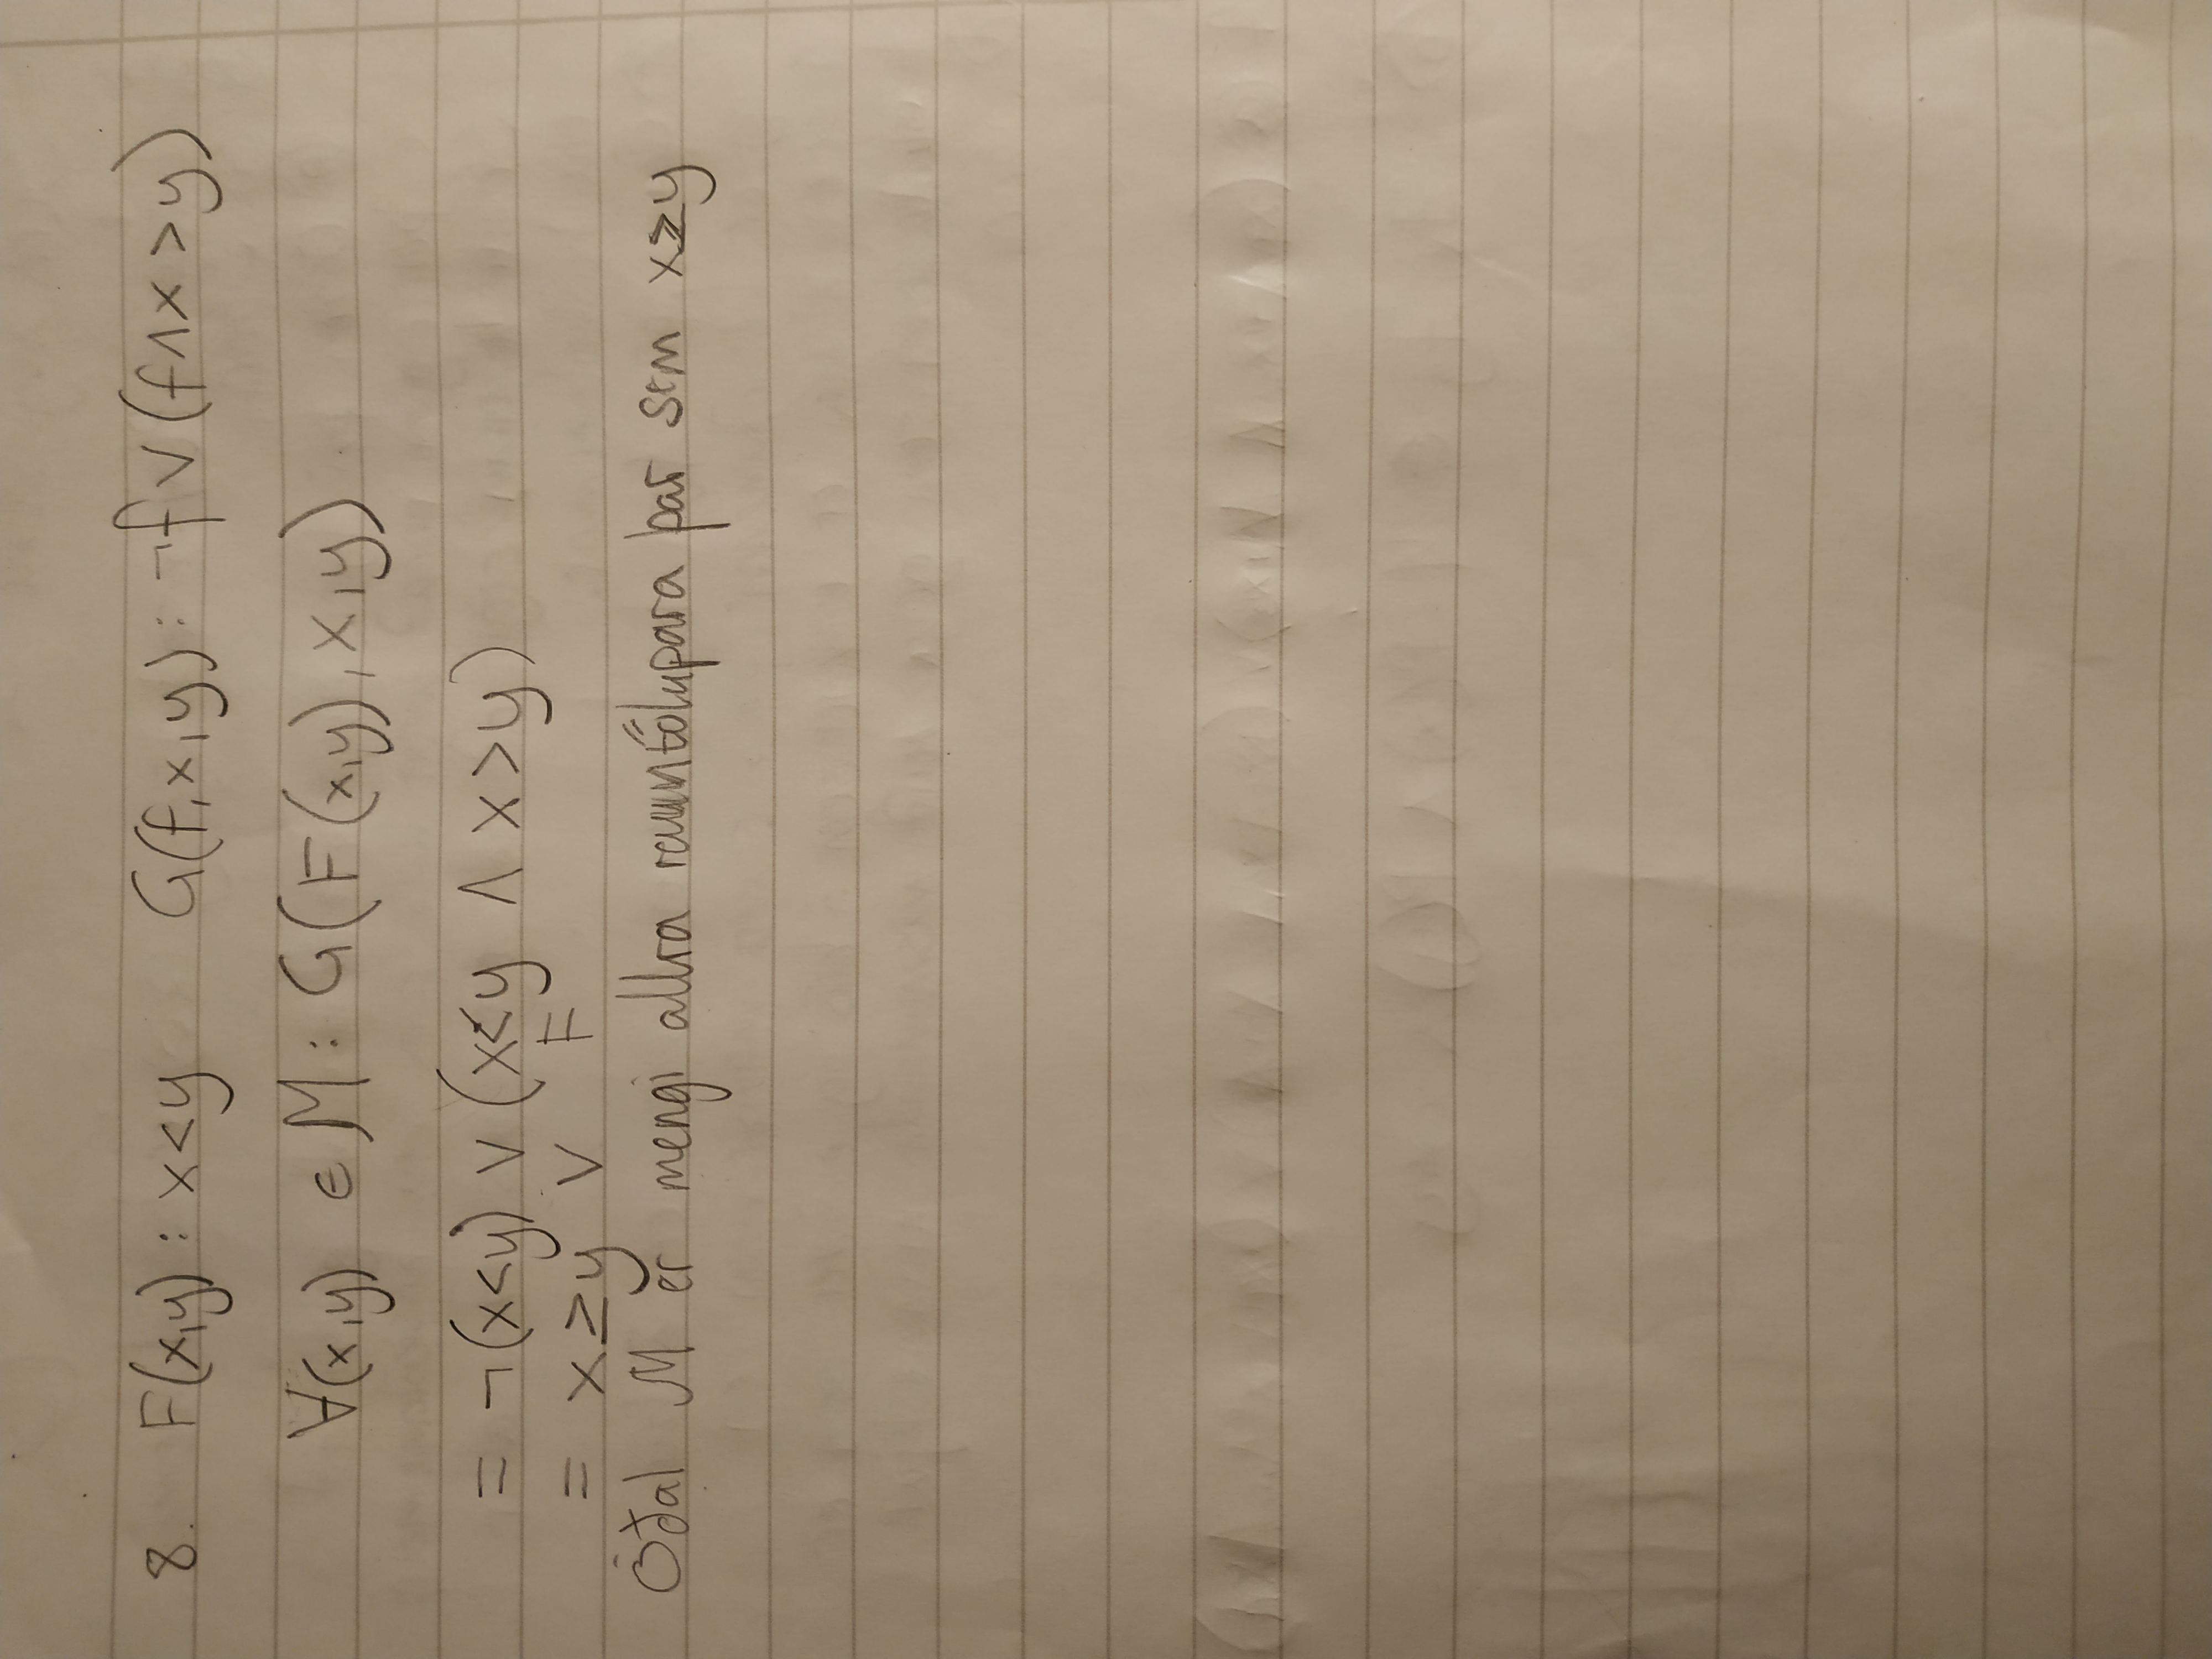 8. F(x,y) : x<y G(f,x,y) : ¬f ∨ (f ∧ x > y)
∀(x,y) ∈ M : G(F(x,y), x,y)
= ¬(x<y) ∨ (x<y ∧ x>y)
= x≥y ∨ F
Óðal M er mengi allra rauntölupara þar sem x≥y